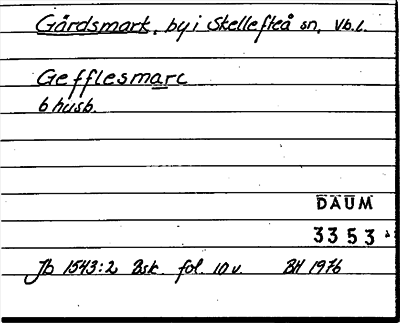 Gårdsmark, by i Skellefteå sn, Vb.l.
Gefflesmarc
6 husb.
DAUM
3353
Jb 1543:2 Bsk. fol. 10 v. BH 1976